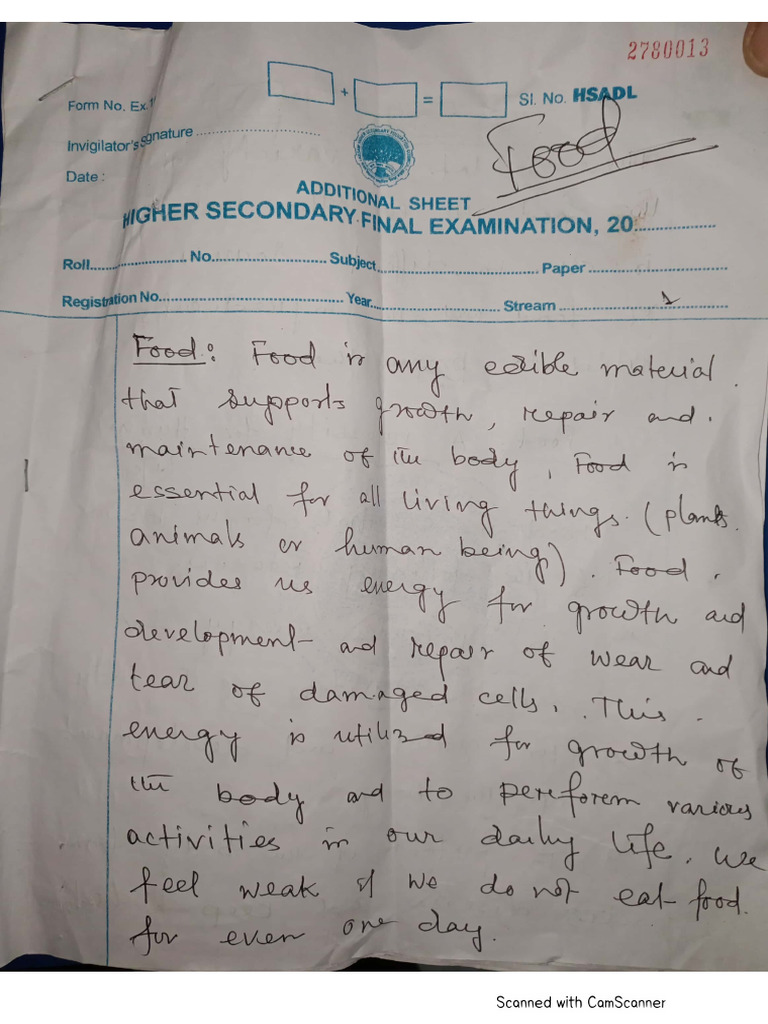 2780013
Form No. Ex.
+ = Sl. No. HSADL
Invigilator's Signature
Food
Date :
ADDITIONAL SHEET
HIGHER SECONDARY FINAL EXAMINATION, 20
Roll No. Subject Paper
Registration No. Year Stream 1
Food: Food is any edible material
that supports growth, repair and
maintenance of the body, Food is
essential for all living things. (plants
animals or human being). Food
provides us energy for growth and
development and repair of wear and
tear of damaged cells. This
energy is utilized for growth of
the body and to pereforem various
activities in our daily life. We
feel weak if we do not eat food
for even one day.
Scanned with CamScanner